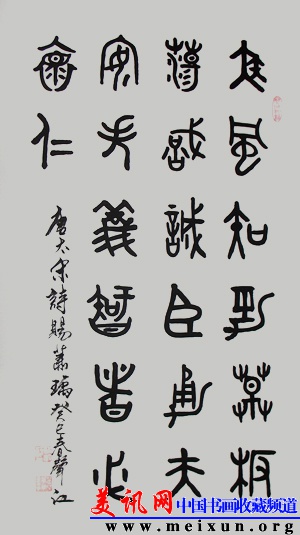 疾風知勁草板
蕩識誠臣勇夫
安義智者必
懷仁
唐太宗詩賜蕭瑀癸巳春聲江
美讯网 中国书画收藏频道
www.meixun.org